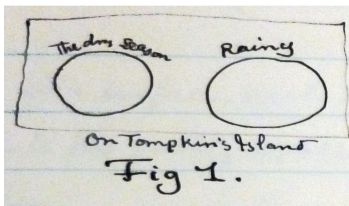 The dry Season
Rainy
On Tompkin's Island
Fig 1.